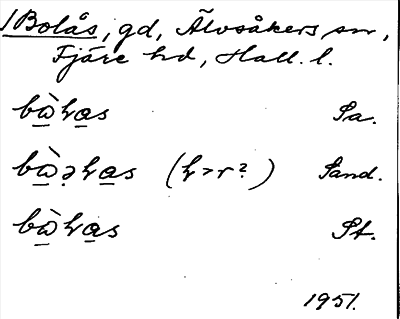 /Bolås, gd, Älvsåkers sn,
Fjäre hd, Hall. l.
bɷ̀ƕas Sa.
bɷ̀əƕas (ƕ>r?) Sand.
bɷ̀ƕas St.
1951.